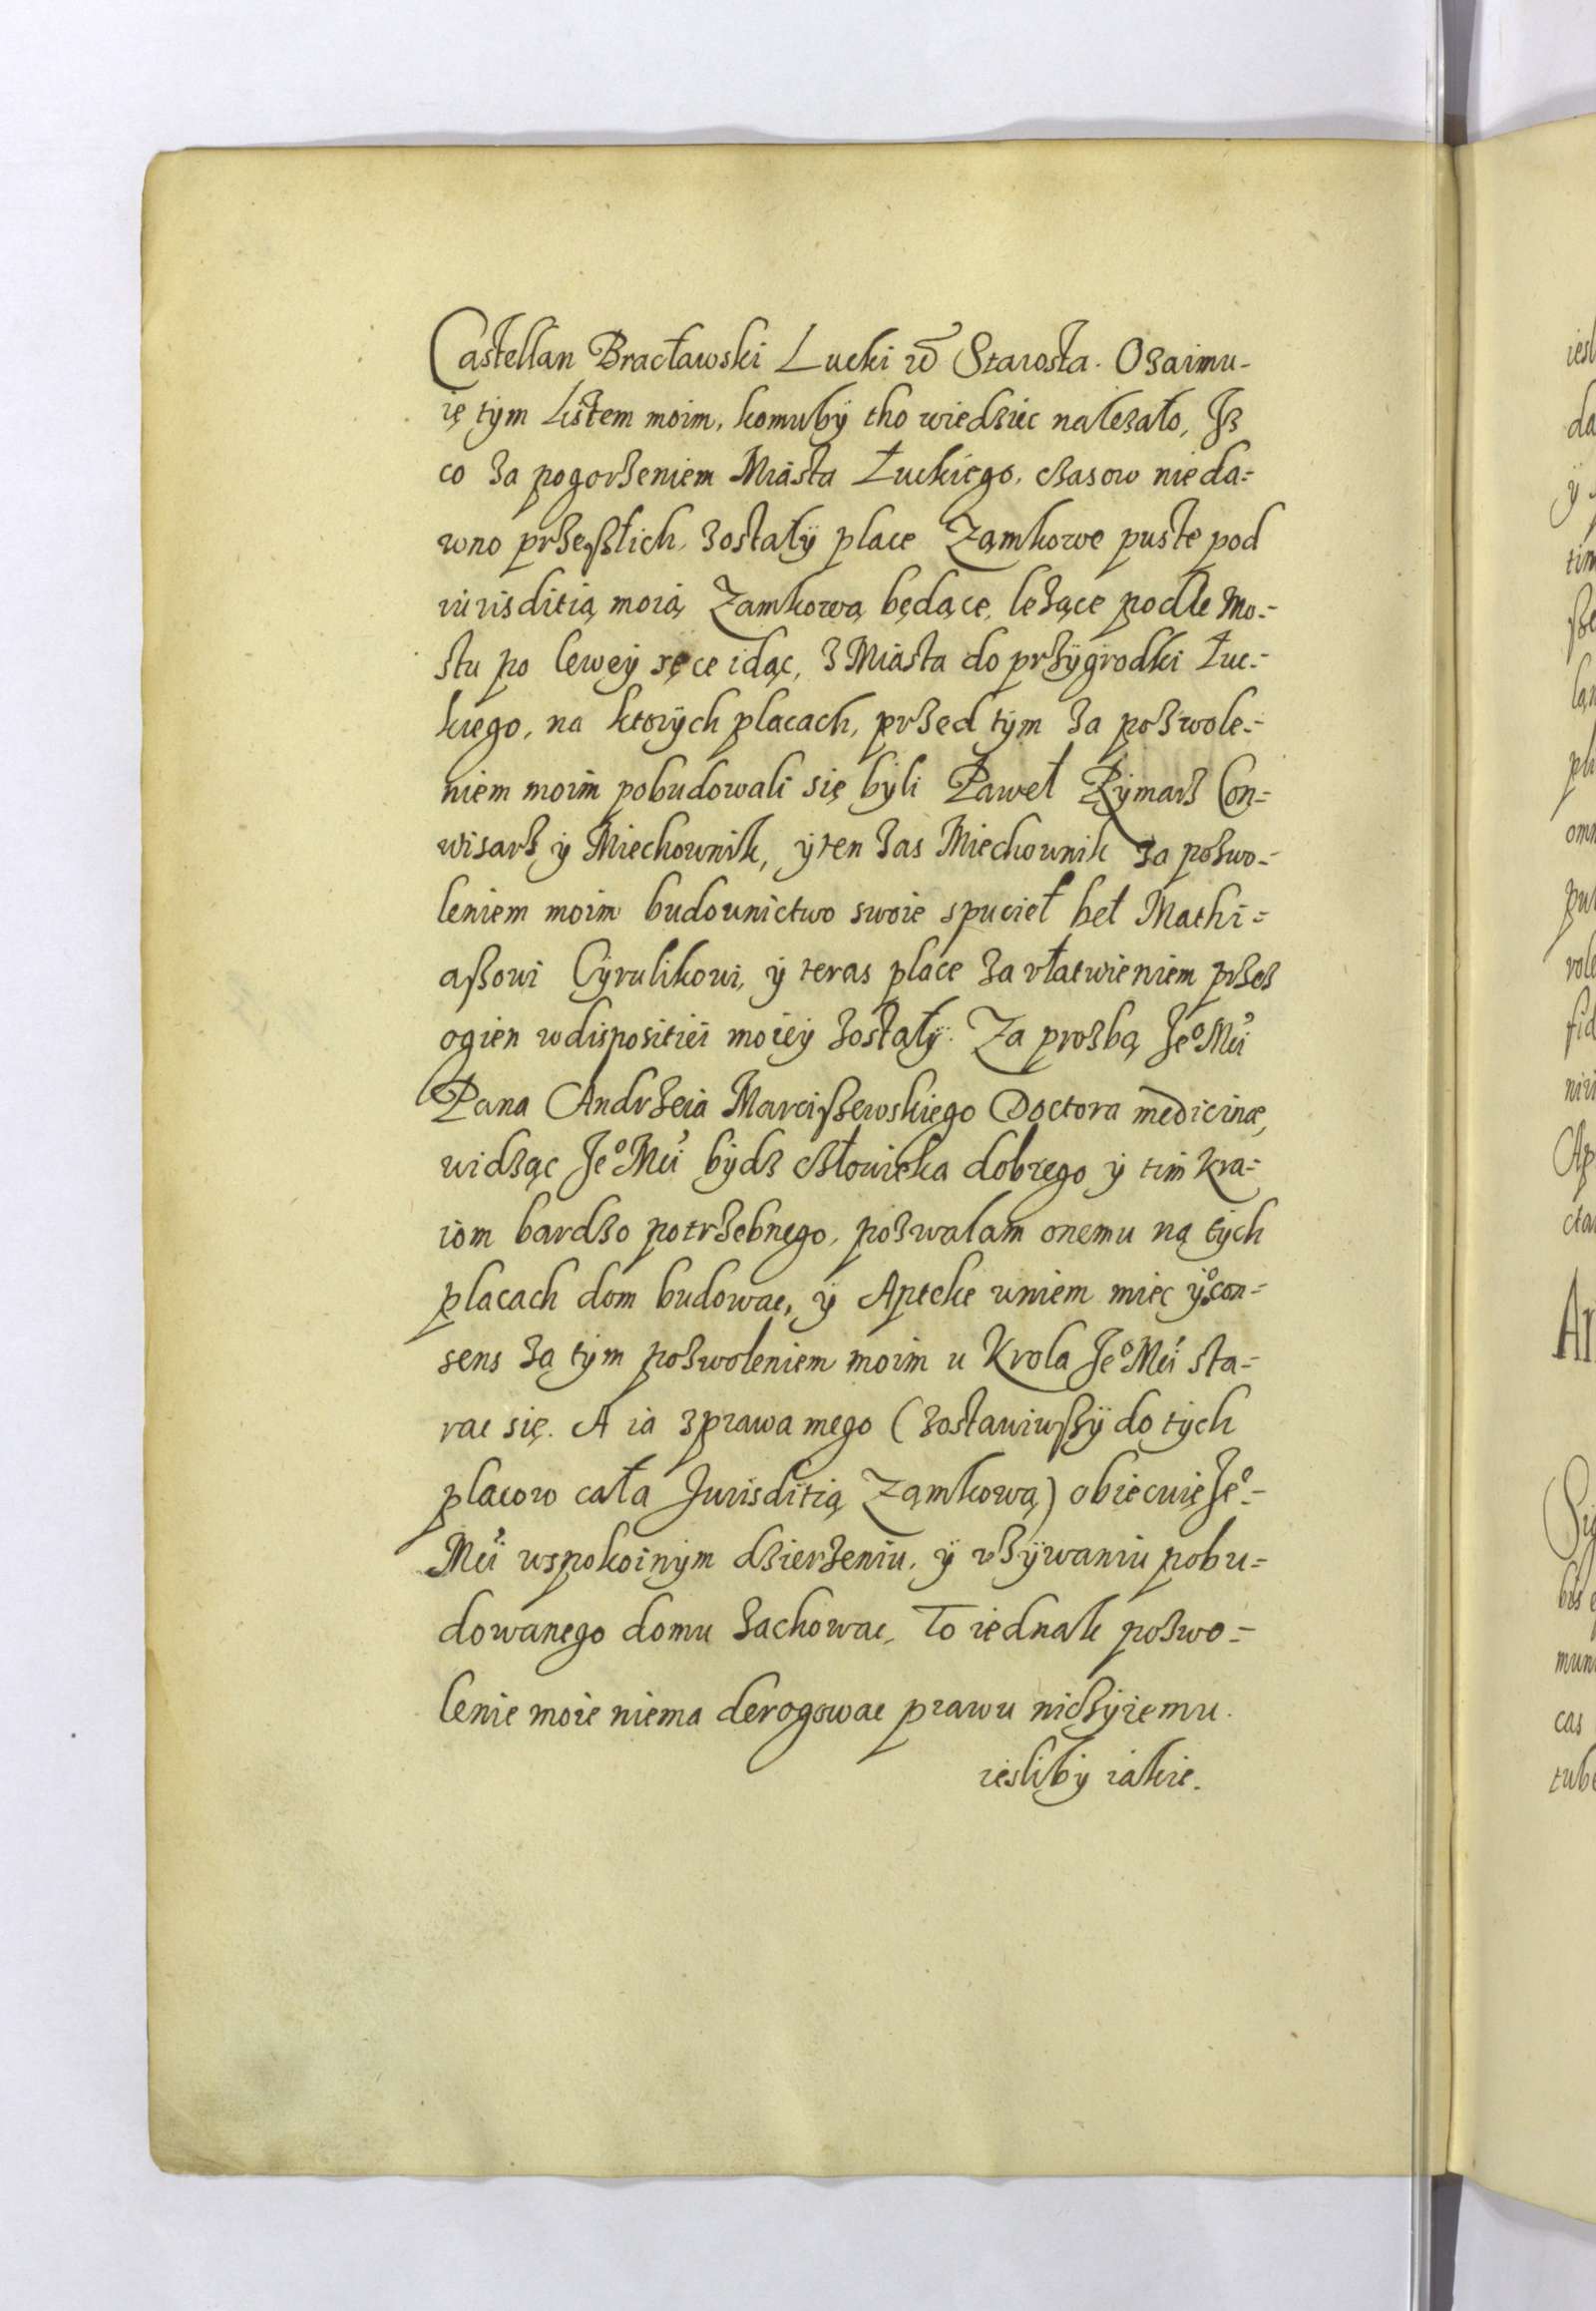 Castellan Bracławski Lucki etc Starosta. Ozaimu-
ię tÿm Listem moim, komubÿ tho wiedziec należało, Jz
co za pogorzeniem Miasta Łuckiego, czasow nieda=
wno przeszłich, zostałÿ place Zamkowe puste pod
iurisditią moią Zamkową będące, leżące podle Mo=
stu po leweÿ ręce idąc, z Miasta do przÿgrodki Łuc=
kiego, na ktorÿch placach, przed tÿm za pozwole=
niem moim pobudowali się bÿli Paweł Rÿmarz Con=
wisarz ÿ Miechownik, ÿ ten zas Miechownik za pozwo=
leniem moim budounictwo swoie spuscieł beł Mathi=
aszowi Cÿrulikowi, ÿ teras place za vłatwieniem przez
ogien w dispositiei moieÿ zostałÿ. Za prozbą Je° Mći
Pana Andrzeia Marciszewskiego Doctora medicinæ,
widząc Je° Mći bÿdz człowieka dobrego ÿ tim Kra=
iom bardzo potrzebnego, pozwalam onemu na tÿch
placach dom budowac, ÿ Aptekę wniem miec ÿ° con=
sens za tÿm pozwoleniem moim u Krola Je° Mći sta=
rac się. A ia z prawa mego (zostawiwszÿ do tÿch
placow całą Jurisditią Zamkową) obiecuię Je°=
Mći wspokoinÿm dzierżeniu, ÿ vżÿwaniu pobu=
dowanego domu zachowac, To iednak pozwo=
lenie moie niema derogowac prawu niczÿiemu.
ieslibÿ iakie.